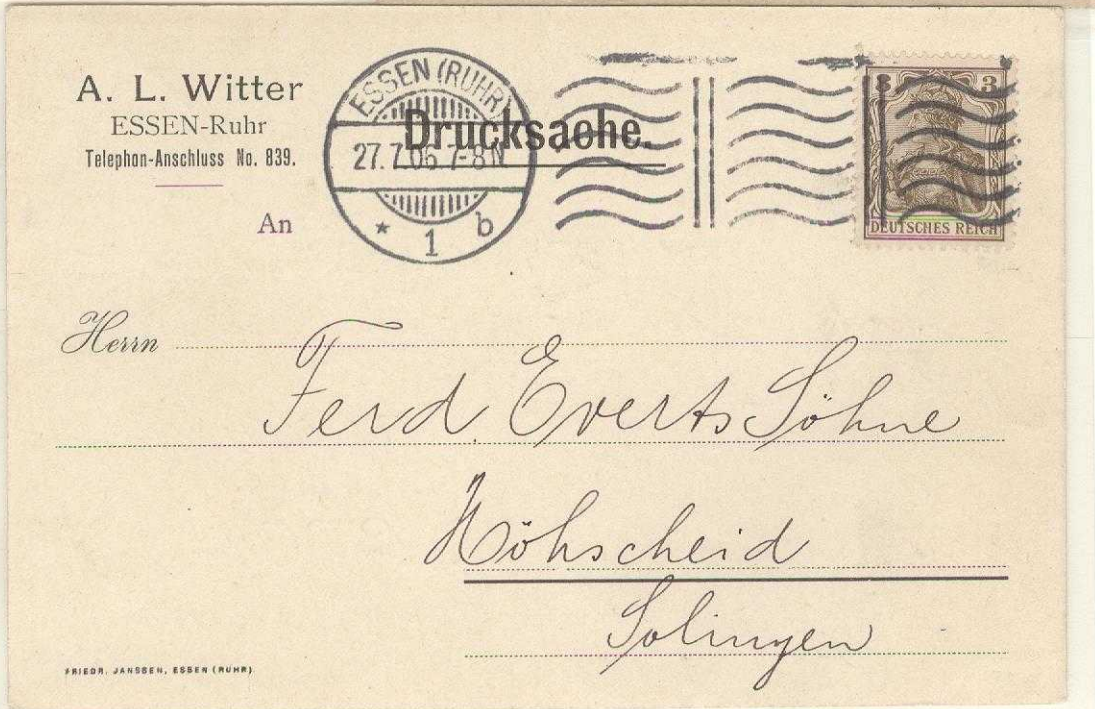 A. L. Witter
ESSEN-Ruhr
Telephon-Anschluss No. 839.
An
ESSEN (RUHR)
27.7.06 7-8N
* 1 b
Drucksache.
3 3
DEUTSCHES REICH
Herrn
Ferd Everts Söhne
Höhscheid
Solingen
FRIEDR. JANSSEN, ESSEN (RUHR)